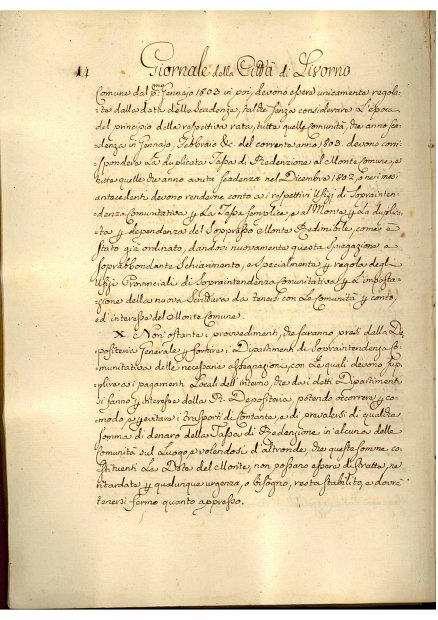 14 Giornale della Città di Livorno
Comune dal p.mo Gennajo 1803 in poi, devono essere unicamente regola-
te dalla data delle Scadenze, talche senza considerare L'epoca
del principio della respettiva rata, tutte quelle Comunità, che anno sca-
denza in Gennajo, Febbraio &c. del corrente anno 1803. devono corri-
spondere La duplicata Tassa di Redenzione al Monte Comune, e
tutte quelle che anno avuta Scadenza nel Dicembre 1802, o nei mesi
antecedenti devono renderne conto a i respettivi Ufizj di Soprainten-
denza Comunitativa p La Tassa semplice, e al Monte p La duplica-
ta p dependenza del Soppresso Monte Redimibile, come è
stato già ordinato, dandosi nuovamente questa spiegazione a
soprabbondante Schiarimento, e specialmente p regola degl'
Ufizj Provinciali di Sopraintendenza Comunitativa p L'impostа-
zione della nuova Scrittura da tenersi con Le Comunità p conto,
ed interesse del Monte Comune.
X. Non ostante i provvedimenti, che saranno presi dalla De-
positeria Generale p fornire i Dipartimenti di Sopraintendenza Co-
munitativa delle necessarie assegnazioni, con Le quali devono sup-
plire a i pagamenti Locali dell'interno, che da i detti Dipartimenti
si fanno p interesse della R. Depositeria, potendo occorrere p co-
modo, e p evitare i trasporti di Contante, e di prevalersi di qualche
somma di denaro della Tassa di Redenzione in alcuna delle
Comunità sul Luogo, e volendosi d'altronde, che queste somme co-
stituenti La Dote del Monte, non possano essere distratte, nè
ritardate p qualunque urgenza, o bisogno, resta stabilito, e dovrà
tenersi fermo quanto appresso.